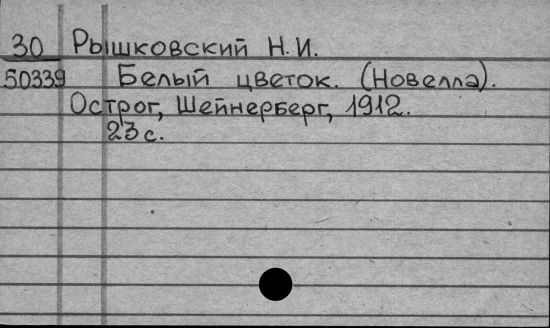 30 Рышковский Н.И.
50339 Белый цветок. (Новелла).
Острог, Шейнерберг, 1912.
23 с.